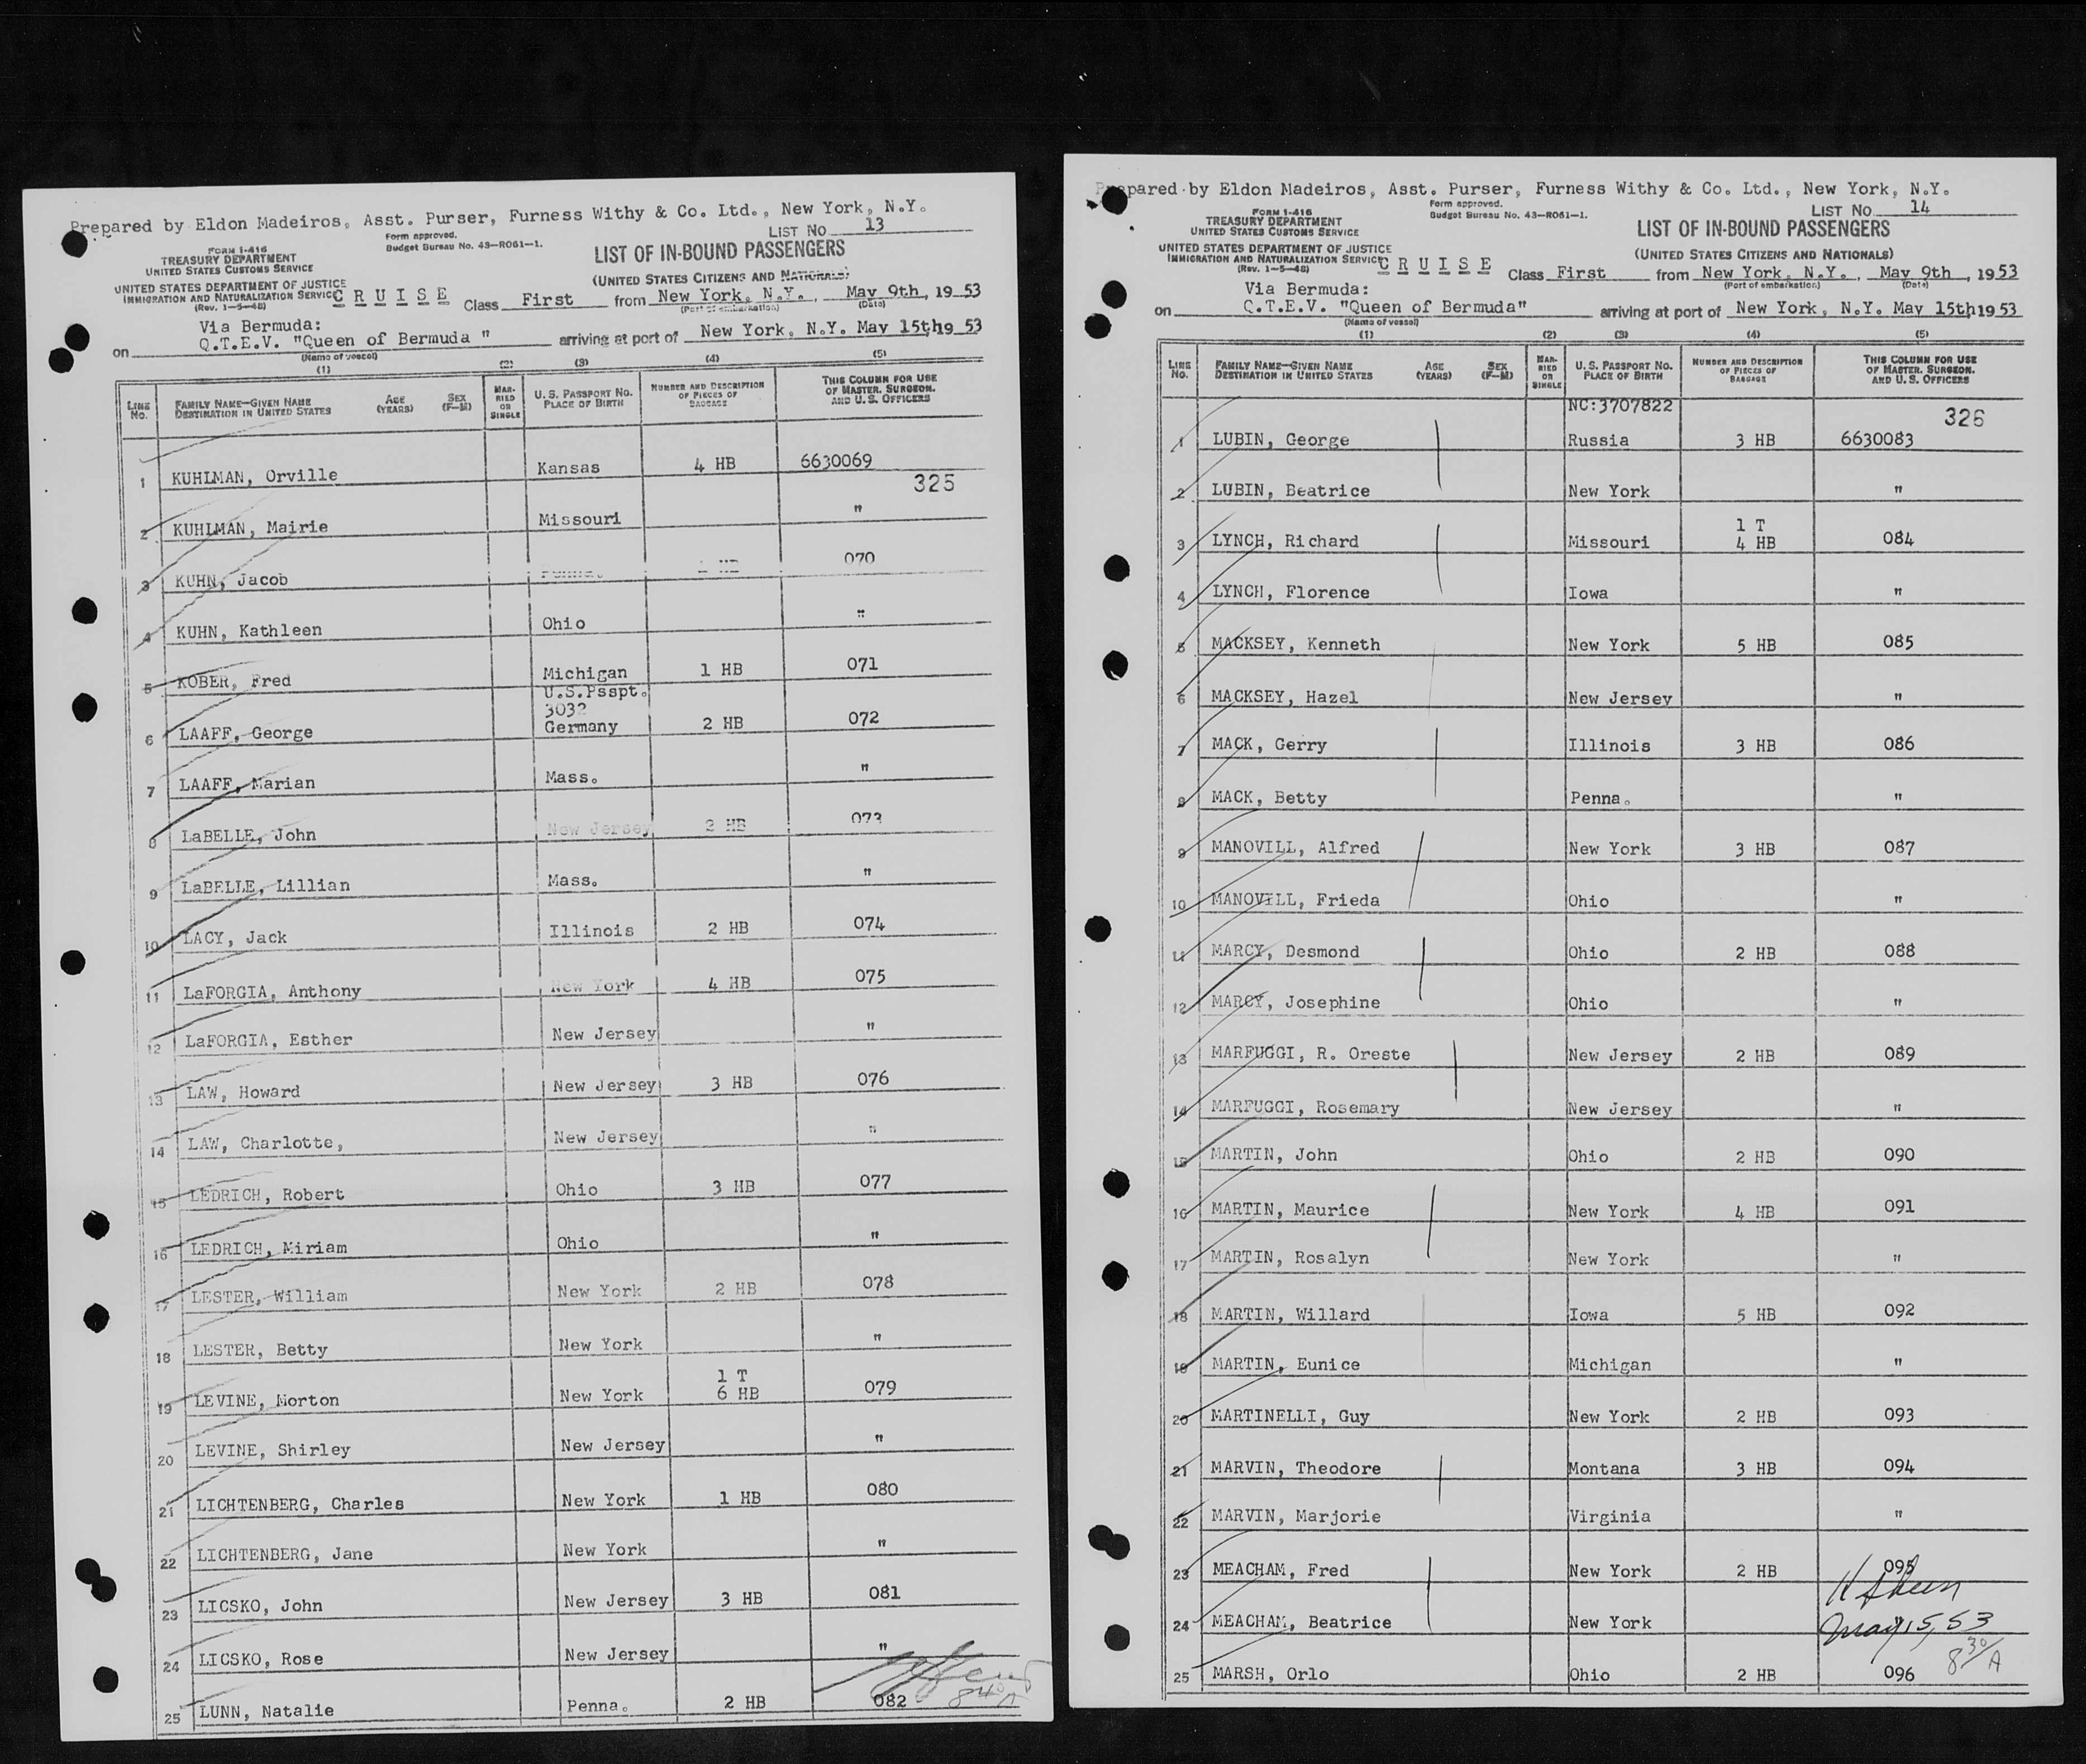 Prepared by Eldon Madeiros, Asst. Purser, Furness Withy & Co. Ltd., New York, N.Y.
LIST No 13
FORM I-416
TREASURY DEPARTMENT
UNITED STATES CUSTOMS SERVICE
Form approved.
Budget Bureau No. 43-R061-1.
LIST OF IN-BOUND PASSENGERS
(UNITED STATES CITIZENS AND NATIONALS)
UNITED STATES DEPARTMENT OF JUSTICE
IMMIGRATION AND NATURALIZATION SERVICE
(Rev. 1-5-48)
C R U I S E Class First from New York, N.Y., May 9th, 1953
(Port of embarkation) (Date)
Via Bermuda:
on Q.T.E.V. "Queen of Bermuda " arriving at port of New York, N.Y. May 15th 19 53
(Name of vessel)
(1) (2) (3) (4) (5)
LINE No. FAMILY NAME—GIVEN NAME DESTINATION IN UNITED STATES AGE (YEARS) SEX (F—M) MARRIED OR SINGLE U. S. PASSPORT No. PLACE OF BIRTH NUMBER AND DESCRIPTION OF PIECES OF BAGGAGE THIS COLUMN FOR USE OF MASTER, SURGEON, AND U. S. OFFICERS
1 KUHLMAN, Orville Kansas 4 HB 6630069
325
2 KUHLMAN, Mairie Missouri "
3 KUHN, Jacob Penna. 070
4 KUHN, Kathleen Ohio "
5 KOBER, Fred Michigan 1 HB 071
U.S.Psspt.
3032
6 LAAFF, George Germany 2 HB 072
7 LAAFF, Marian Mass. "
8 LaBELLE, John New Jersey 2 HB 073
9 LaBELLE, Lillian Mass. "
10 LACY, Jack Illinois 2 HB 074
11 LaFORGIA, Anthony New York 4 HB 075
12 LaFORGIA, Esther New Jersey "
13 LAW, Howard New Jersey 3 HB 076
14 LAW, Charlotte, New Jersey "
15 LEDRICH, Robert Ohio 3 HB 077
16 LEDRICH, Miriam Ohio "
17 LESTER, William New York 2 HB 078
18 LESTER, Betty New York "
1 T
19 LEVINE, Morton New York 6 HB 079
20 LEVINE, Shirley New Jersey "
21 LICHTENBERG, Charles New York 1 HB 080
22 LICHTENBERG, Jane New York "
23 LICSKO, John New Jersey 3 HB 081
24 LICSKO, Rose New Jersey "
25 LUNN, Natalie Penna. 2 HB 082
Prepared by Eldon Madeiros, Asst. Purser, Furness Withy & Co. Ltd., New York, N.Y.
LIST No. 14
FORM I-416
TREASURY DEPARTMENT
UNITED STATES CUSTOMS SERVICE
Form approved.
Budget Bureau No. 43-R061-1.
LIST OF IN-BOUND PASSENGERS
(UNITED STATES CITIZENS AND NATIONALS)
UNITED STATES DEPARTMENT OF JUSTICE
IMMIGRATION AND NATURALIZATION SERVICE
(Rev. 1-5-48)
C R U I S E Class First from New York, N.Y., May 9th, 1953
(Port of embarkation) (Date)
Via Bermuda:
on Q.T.E.V. "Queen of Bermuda" arriving at port of New York, N.Y. May 15th 1953
(Name of vessel)
(1) (2) (3) (4) (5)
LINE No. FAMILY NAME—GIVEN NAME DESTINATION IN UNITED STATES AGE (YEARS) SEX (F—M) MARRIED OR SINGLE U. S. PASSPORT No. PLACE OF BIRTH NUMBER AND DESCRIPTION OF PIECES OF BAGGAGE THIS COLUMN FOR USE OF MASTER, SURGEON, AND U. S. OFFICERS
NC:3707822 326
1 LUBIN, George Russia 3 HB 6630083
2 LUBIN, Beatrice New York "
1 T
3 LYNCH, Richard Missouri 4 HB 084
4 LYNCH, Florence Iowa "
5 MACKSEY, Kenneth New York 5 HB 085
6 MACKSEY, Hazel New Jersey "
7 MACK, Gerry Illinois 3 HB 086
8 MACK, Betty Penna. "
9 MANOVILL, Alfred New York 3 HB 087
10 MANOVILL, Frieda Ohio "
11 MARCY, Desmond Ohio 2 HB 088
12 MARCY, Josephine Ohio "
13 MARFUGGI, R. Oreste New Jersey 2 HB 089
14 MARFUGGI, Rosemary New Jersey "
15 MARTIN, John Ohio 2 HB 090
16 MARTIN, Maurice New York 4 HB 091
17 MARTIN, Rosalyn New York "
18 MARTIN, Willard Iowa 5 HB 092
19 MARTIN, Eunice Michigan "
20 MARTINELLI, Guy New York 2 HB 093
21 MARVIN, Theodore Montana 3 HB 094
22 MARVIN, Marjorie Virginia "
23 MEACHAM, Fred New York 2 HB 095
24 MEACHAM, Beatrice New York "
May 15, 53
8 30/A
25 MARSH, Orlo Ohio 2 HB 096